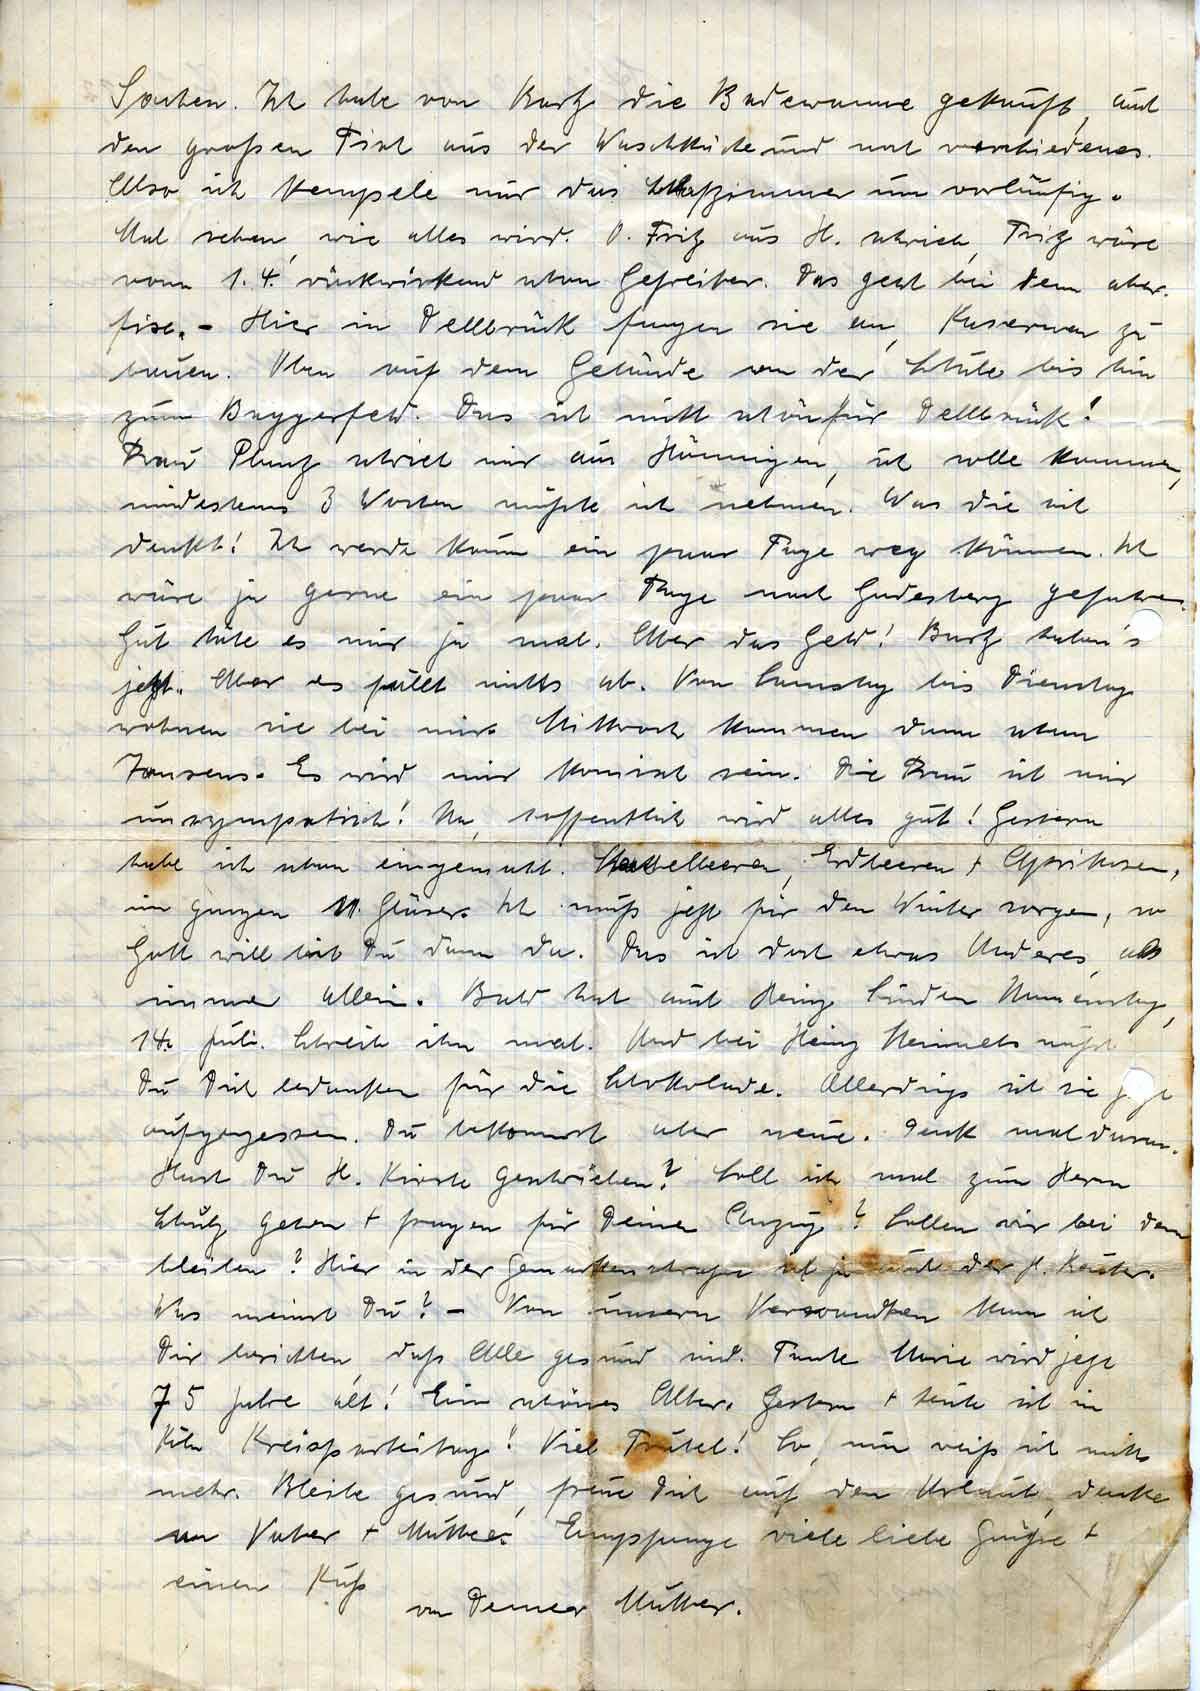 Sachen. Ich habe von Kurtz die Badewanne gekauft, und
den großen Tisch aus der Waschküche und noch verschiedenes.
Also ich krempele nur das Schlafzimmer um vorläufig.
Mal sehen, wie alles wird. O. Fritz aus H. schrieb, Fritz wäre
vom 1.4. rückwirkend schon Gefreiter. Das geht bei dem aber
fix. – Hier in Dellbrück fangen sie an, Kasernen zu
bauen. Oben auf dem Gelände von der Schule bis hin
zum Baggerfeld. Das ist nicht schön für Dellbrück!
Frau schrieb mir aus Hönningen, ich solle kommen,
mindestens 3 Wochen müßte ich nehmen. Was die sich
denkt! Ich werde kaum ein paar Tage weg können. Ich
wäre ja gerne ein paar Tage nach Godesberg gefahren.
Gut täte es mir ja mal. Aber das Geld! Kurtz haben's
jetzt. Aber es fällt nichts ab. Von Samstag bis Dienstag
wohnen sie bei mir. Mittwoch kommen dann schon
Jansens. Es wird mir komisch sein. Die Frau ist mir
unsympatisch! Na, hoffentlich wird alles gut! Gestern
habe ich schon eingemacht. Erdbeeren + Aprikosen,
im ganzen 11 Gläser. Ich muß jetzt für den Winter sorgen, so
Gott will bist Du dann da. Das ist doch etwas Anderes, als
immer allein. Bald hat auch Heinz Namenstag,
14. Juli. Schreib ihm mal. Und bei Heinz mußt
Du Dich bedanken für die Schokolade. Allerdings ist sie jetzt
aufgegessen. Du bekommst aber neue. Denk mal daran.
Hast Du H. geschrieben? Soll ich mal zum Herrn
Schütz gehen + fragen für Deinen Anzug? Sollen wir bei dem
bleiben? Hier in der Gemarkenstraße ist ja auch der
Was meinst Du? – Von unsern Verwandten kann ich
Dir berichten, daß Alle gesund sind. Tante Marie wird jetzt
75 Jahre alt! Ein schönes Alter. Gestern + heute ist in
Köln Kreisparteitag! Viel Trubel! So, nun weiß ich nichts
mehr. Bleibe gesund, freue Dich auf den Urlaub, denke
an Vater + Mutter. Empfange viele liebe Grüße +
einen Kuß
von Deiner Mutter.